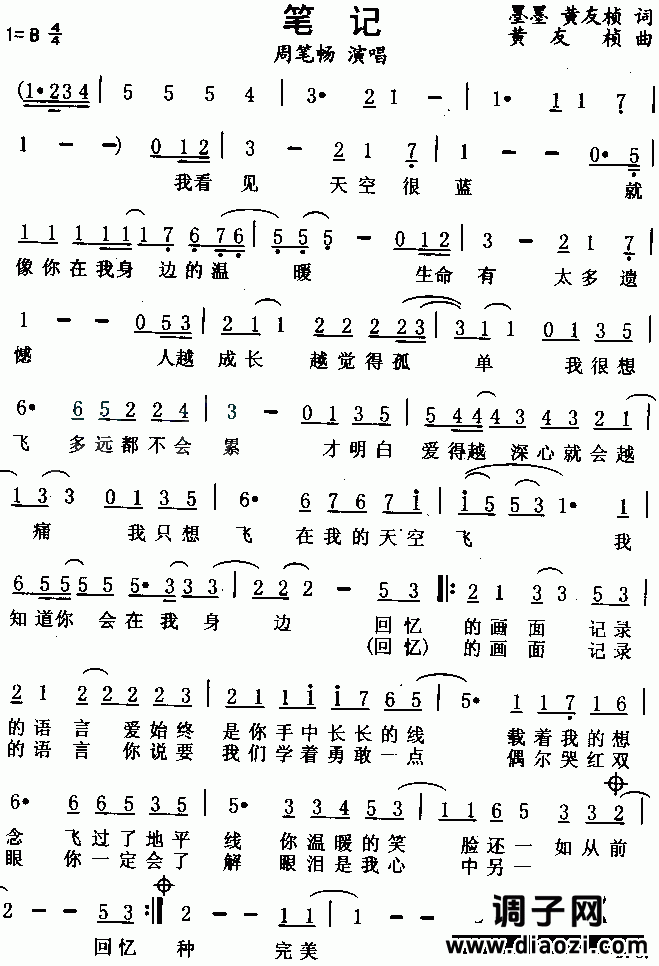 笔记
墨墨 黄友桢 词
1=B 4/4
黄友桢 曲
周笔畅 演唱
(1•234 | 5 5 5 4 | 3• 2 1 - | 1• 1 1 7 |
1 - -) 0 1 2 | 3 - 2 1 7 | 1 - - 0• 5 |
我看 见 天空很 蓝 就
1 1 1 1 1 1 7 6 7 6 | 5 5 5 - 0 1 2 | 3 - 2 1 7 |
像你在我身 边的温 暖 生命 有 太多遗
1 - - 0 5 3 | 2 1 1 2 2 2 2 3 | 3 1 1 0 1 3 5 |
憾 人越 成长 越觉得孤 单 我很想
6• 6 5 2 2 4 | 3 - 0 1 3 5 | 5 4 4 4 3 4 3 2 1 |
飞 多远都不会 累 才明白 爱得越 深心就会越
1 3 3 0 1 3 5 | 6• 6 7 6 7 1 | i 5 5 5 3 1• 1 |
痛 我只想 飞 在我的天空 飞 我
6 5 5 5 5 5• 3 3 3 | 2 2 2 - 5 3 |: 2 1 3 3 5 3 |
知道你 会在我 身 边 回忆 的画面 记录
(回忆)的画面 记录
2 1 2 2 2 2 3 | 2 1 i i 7 6 5 | 5• 1 1 7 1 6 |
的语言 爱始终 是你手中长长的线 载着我的想
的语言 你说要 我们学着勇敢一点 偶尔哭红双
6• 6 6 5 3 5 | 5• 3 3 4 5 3 | 1 1 6 5 3 3 2 |
念 飞过了地平 线 你温暖的笑 脸还一 如从前
眼 你一定会了 解 眼泪是我心 中另一
2 - - 5 3 :| 2 - 2 1 1 | 1 - -
回忆 种 完美
调子网
www.diaozi.com